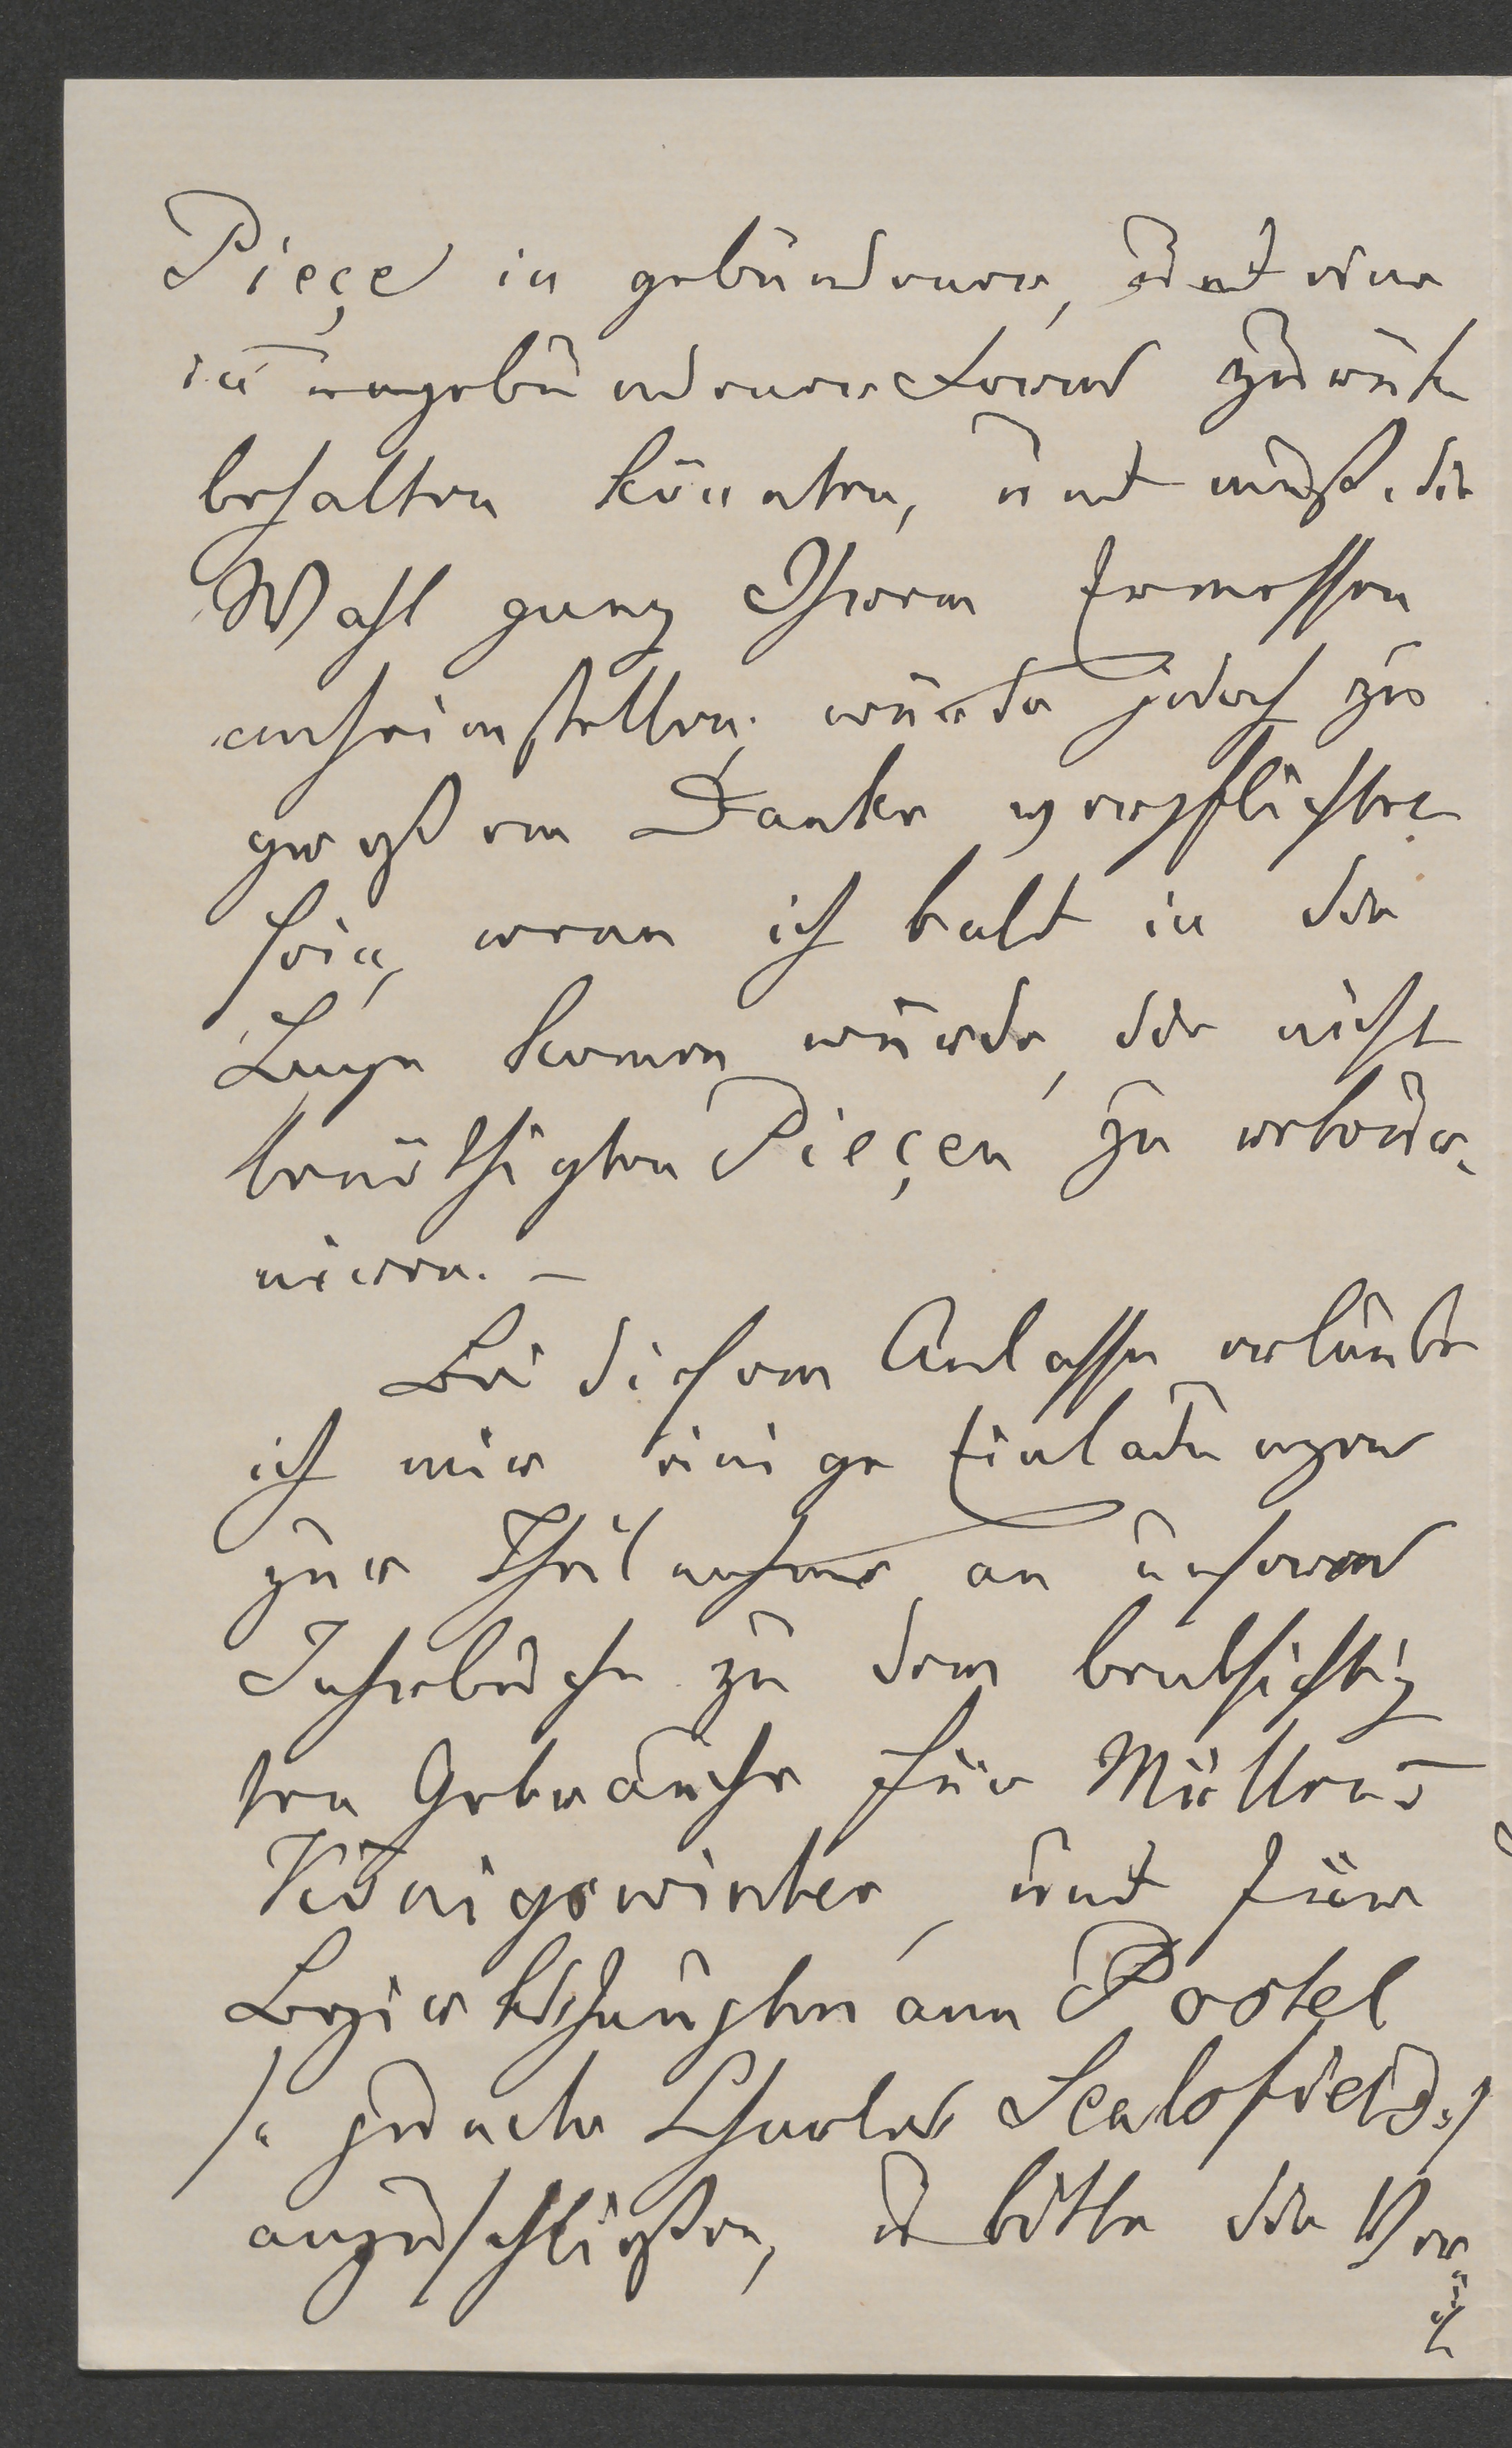 Pieçe in gebundener, und eine
in ungebundener Form zurück
behalten könnten, und muß die
Wahl ganz Ihrem Ermessen
anheimstellen; würde jedoch zu
großem Danke verpflichtet
sein, wenn ich bald in die
Lage kommen würde, die nicht
benöthigten Pieçen zu retour-
niren. –
Bei diesem Anlasse erlaube
ich mir einige Einladungen
zur Theilnahme an unserem
Jahrbuche zu dem beabsichtig
ten Gebrauche für Müller v
Königswinter, und für
Bezirkshauptmann Postel
/: pseudo Charles Sealsfield :/
anzuschließen, u bitte die Ver-